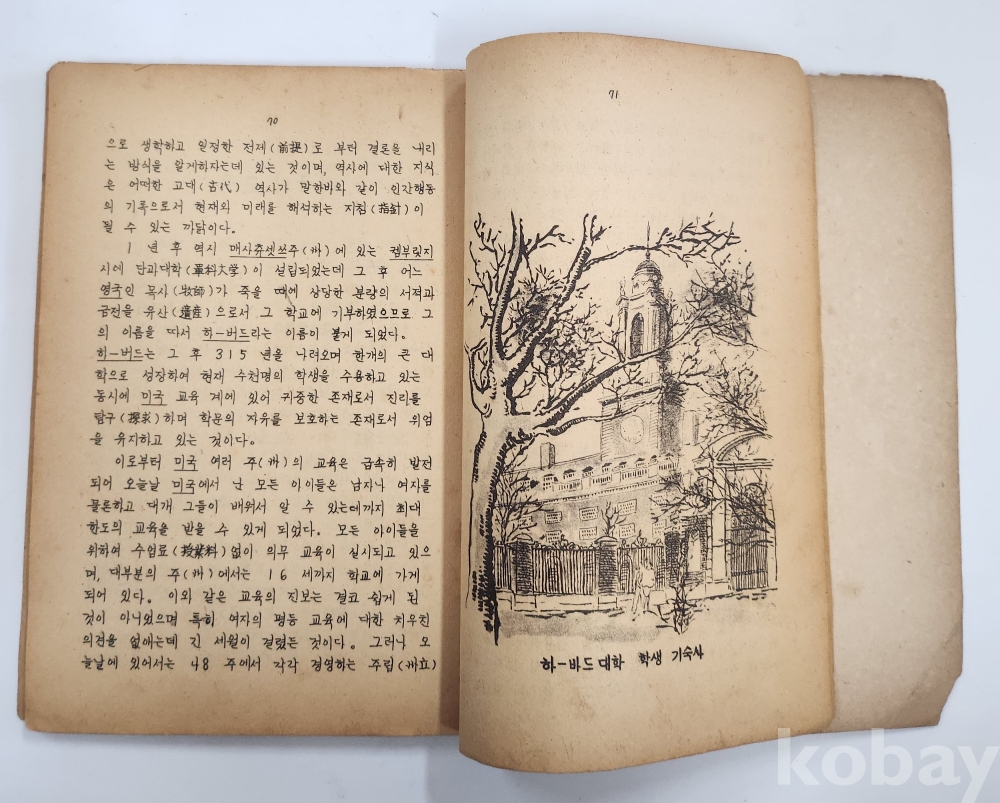 70
으로 생학하고 일정한 전제(前提)로 부터 결론을 내리
는 방식을 알게하자는데 있는 것이며, 역사에 대한 지식
은 어떠한 고대(古代) 역사가 말한바와 같이 인간행동
의 기록으로서 현재와 미래를 해석하는 지침(指針)이
될 수 있는 까닭이다.
1 년 후 역시 매사츄셋쓰주(州)에 있는 켐부릿지
시에 단과대학(單科大学)이 설립되었는데 그 후 어느
영국인 목사(牧師)가 죽을 때에 상당한 분량의 서적과
금전을 유산(遺産)으로서 그 학교에 기부하였으므로 그
의 이름을 따서 하-버드라는 이름이 붙게 되었다.
하-버드는 그 후 315 년을 나려오며 한개의 큰 대
학으로 성장하여 현재 수천명의 학생을 수용하고 있는
동시에 미국 교육 계에 있어 귀중한 존재로서 진리를
탐구(探求)하며 학문의 자유를 보호하는 존재로서 위엄
을 유지하고 있는 것이다.
이로부터 미국 여러 주(州)의 교육은 급속히 발전
되어 오늘날 미국에서 난 모든 아이들은 남자나 여자를
물론하고 대개 그들이 배워서 알 수 있는데까지 최대
한도의 교육을 받을 수 있게 되었다. 모든 아이들을
위하여 수업료(授業料)없이 의무 교육이 실시되고 있으
며, 대부분의 주(州)에서는 16 세까지 학교에 가게
되어 있다. 이와 같은 교육의 진보는 결코 쉽게 된
것이 아니었으며 특히 여자의 평등 교육에 대한 치우친
의견을 없애는데 긴 세월이 걸렸든 것이다. 그러나 오
늘날에 있어서는 48 주에서 각각 경영하는 주립(州立)
71
하-바드 대학 학생 기숙사
kobay